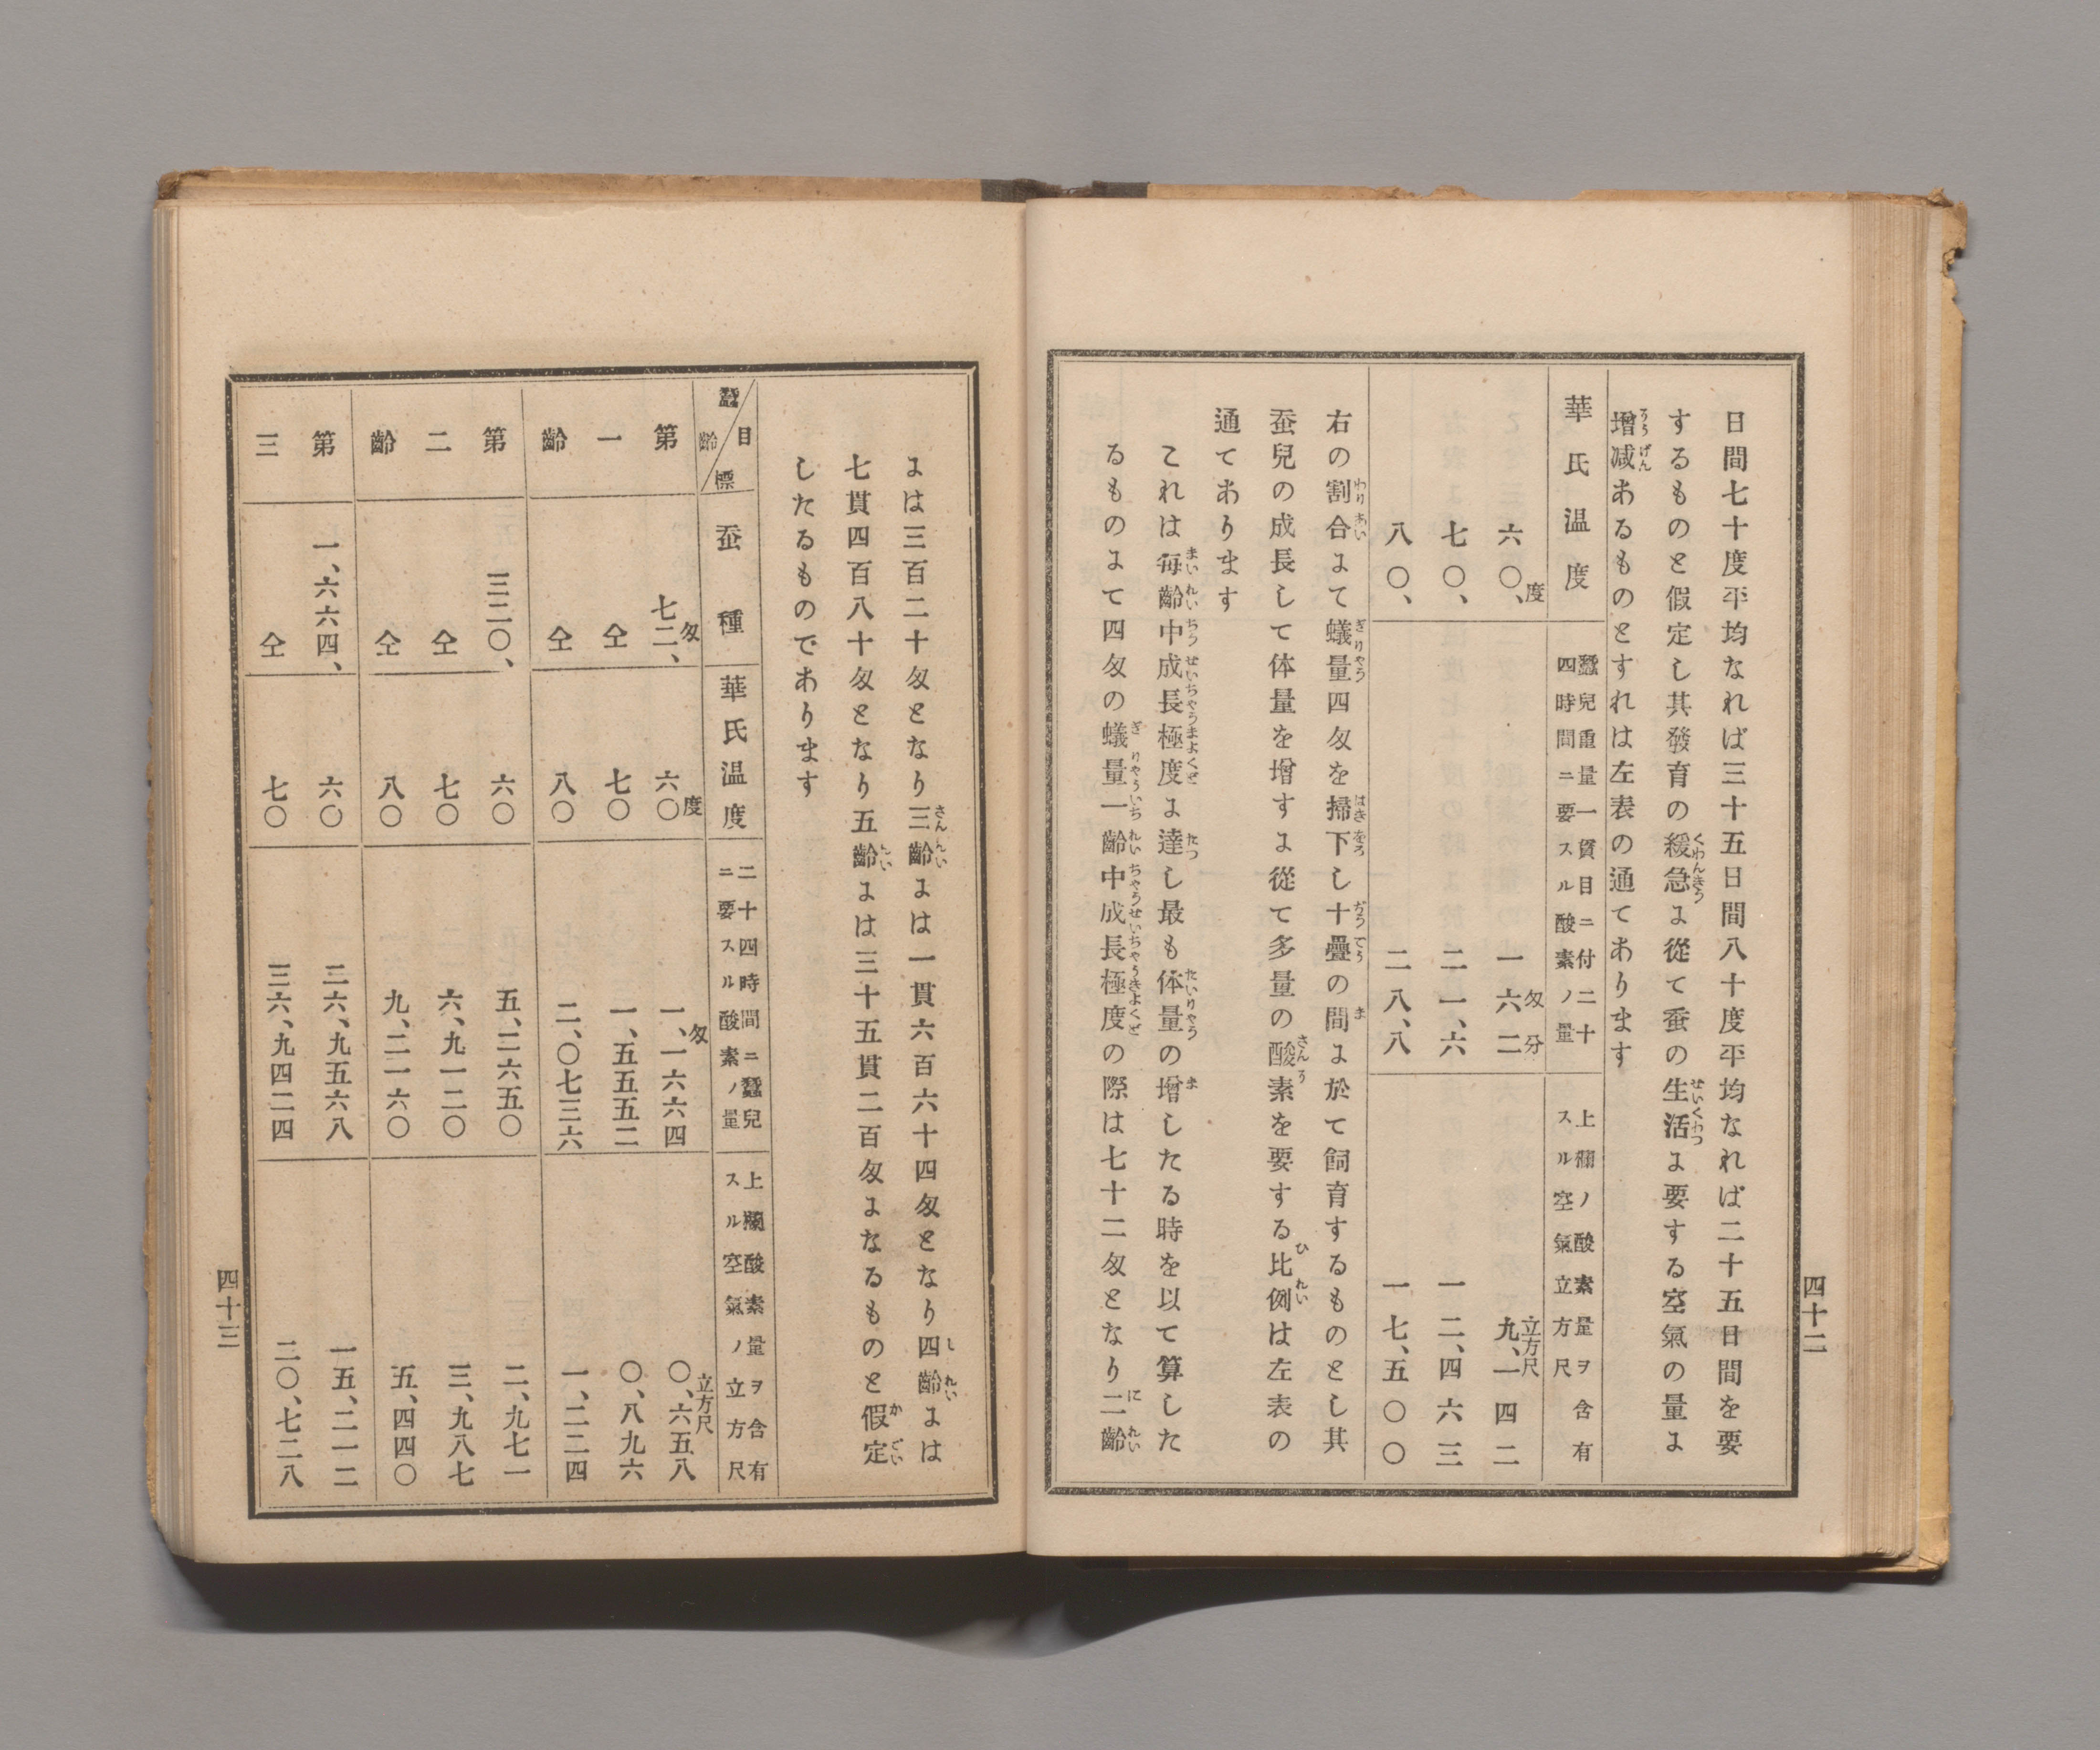 日間七十度平均なれば三十五日間八十度平均なれば二十五日間を要
するものと假定し其發育の緩急に從て蚕の生活に要する空氣の量に
増減あるものとすれは左表の通てあります
華氏温度
蠶兒重量一貫目ニ付二十
四時間ニ要スル酸素ノ量
上欄ノ酸素量ヲ含有
スル空氣立方尺
六〇、度
一六匁二分
九、一四二立方尺
七〇、
二一、六
一二、四六三
八〇、
二八、八
一七、五〇〇
右の割合にて蟻量四匁を掃下し十疊の間に於て飼育するものとし其
蚕兒の成長して体量を增すに從て多量の酸素を要する比例は左表の
通てあります
これは每齡中成長極度に達し最も体量の增したる時を以て算した
るものにて四匁の蟻量一齡中成長極度の際は七十二匁となり二齡
四十二
には三百二十匁となり三齡には一貫六百六十四匁となり四齡には
七貫四百八十匁となり五齡には三十五貫二百匁になるものと假定
したるものであります
蠶齡
目標
蚕種
華氏温度
二十四時間ニ蠶兒
ニ要スル酸素ノ量
上欄酸素量ヲ含有
スル空氣ノ立方尺
第一齡
七二、匁
六〇度
一、一六六四匁
〇、六五八立方尺
仝
七〇
一、五五五二
〇、八九六
仝
八〇
二、〇七三六
一、二二四
第二齡
三二〇、
六〇
五、二六五〇
二、九七一
仝
七〇
六、九一二〇
三、九八七
仝
八〇
九、二一六〇
五、四四〇
第三
一、六六四、
六〇
二六、九五六八
一五、二一二
仝
七〇
三六、九四二四
二〇、七二八
四十三